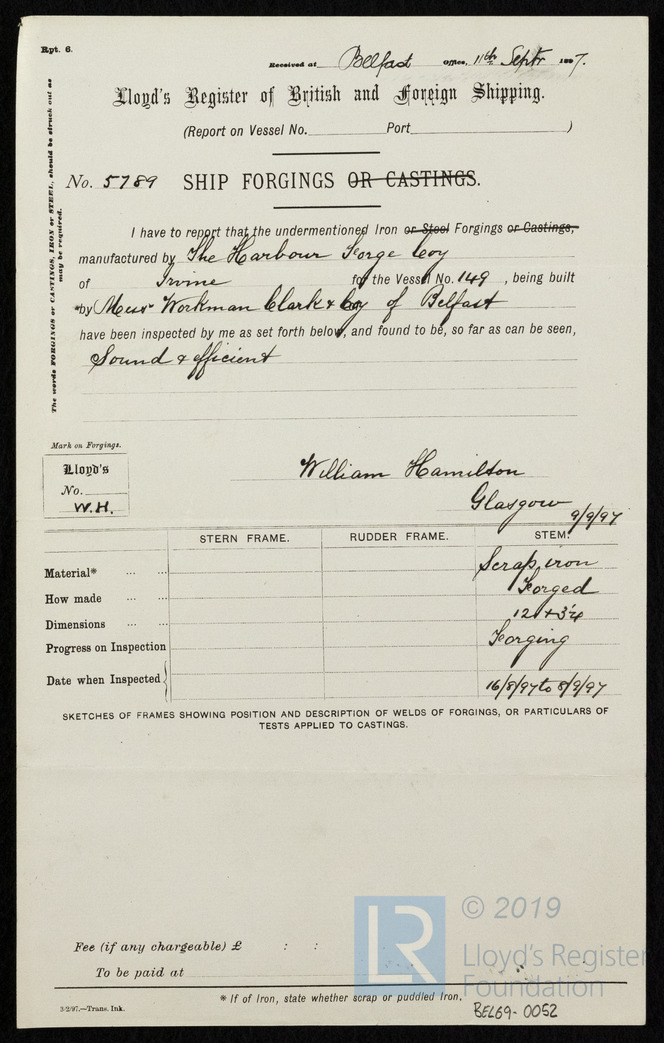 Rpt. 6.
Received at Belfast Office, 11th Septr 1897.
Lloyd's Register of British and Foreign Shipping.
(Report on Vessel No. Port )
No. 5789 SHIP FORGINGS OR CASTINGS.
The words FORGINGS or CASTINGS, IRON or STEEL, should be struck out as
may be required.
I have to report that the undermentioned Iron or Steel Forgings or Castings,
manufactured by The Harbour Forge Coy
of Irvine for the Vessel No. 149, being built
*by Messrs Workman Clark & Coy of Belfast
have been inspected by me as set forth below, and found to be, so far as can be seen,
Sound & efficient
Mark on Forgings.
Lloyd's
No.
W.H.
William Hamilton
Glasgow 9/9/97
STERN FRAME. RUDDER FRAME. STEM.
Material* ... ... Scrap iron
How made ... ... Forged
Dimensions ... ...
Progress on Inspection Forging
Date when Inspected 16/8/97 to 8/9/97
SKETCHES OF FRAMES SHOWING POSITION AND DESCRIPTION OF WELDS OF FORGINGS, OR PARTICULARS OF
TESTS APPLIED TO CASTINGS.
Fee (if any chargeable) £ : :
To be paid at
* If of Iron, state whether scrap or puddled iron.
3/2/97.—Trans. Ink.
LR
© 2019
Lloyd's Register
Foundation
BEL69-0052